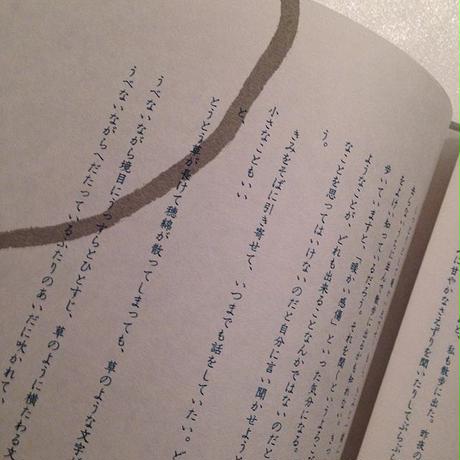 、私も散歩に出た。昨夜の
に甘やかなさえずりを聞いたりしてぶらぶら
歩いていますと、「暖かい感傷」といった気分になる。
ようなことが、どれも出来ることなんかではないのだと
なことを思ってはいけないのだと自分に言い聞かせよう
う。
きみをそばに引き寄せて、いつまでも話をしていたい。ど
小さなこともいい
と、
とうとう草が長けて穂綿が散ってしまっても、草のような文字
うべないながら境目にうっすらとひとすじ、草のように横たわる文
うべないながらへだたっているふたりのあいだに吹かれて、